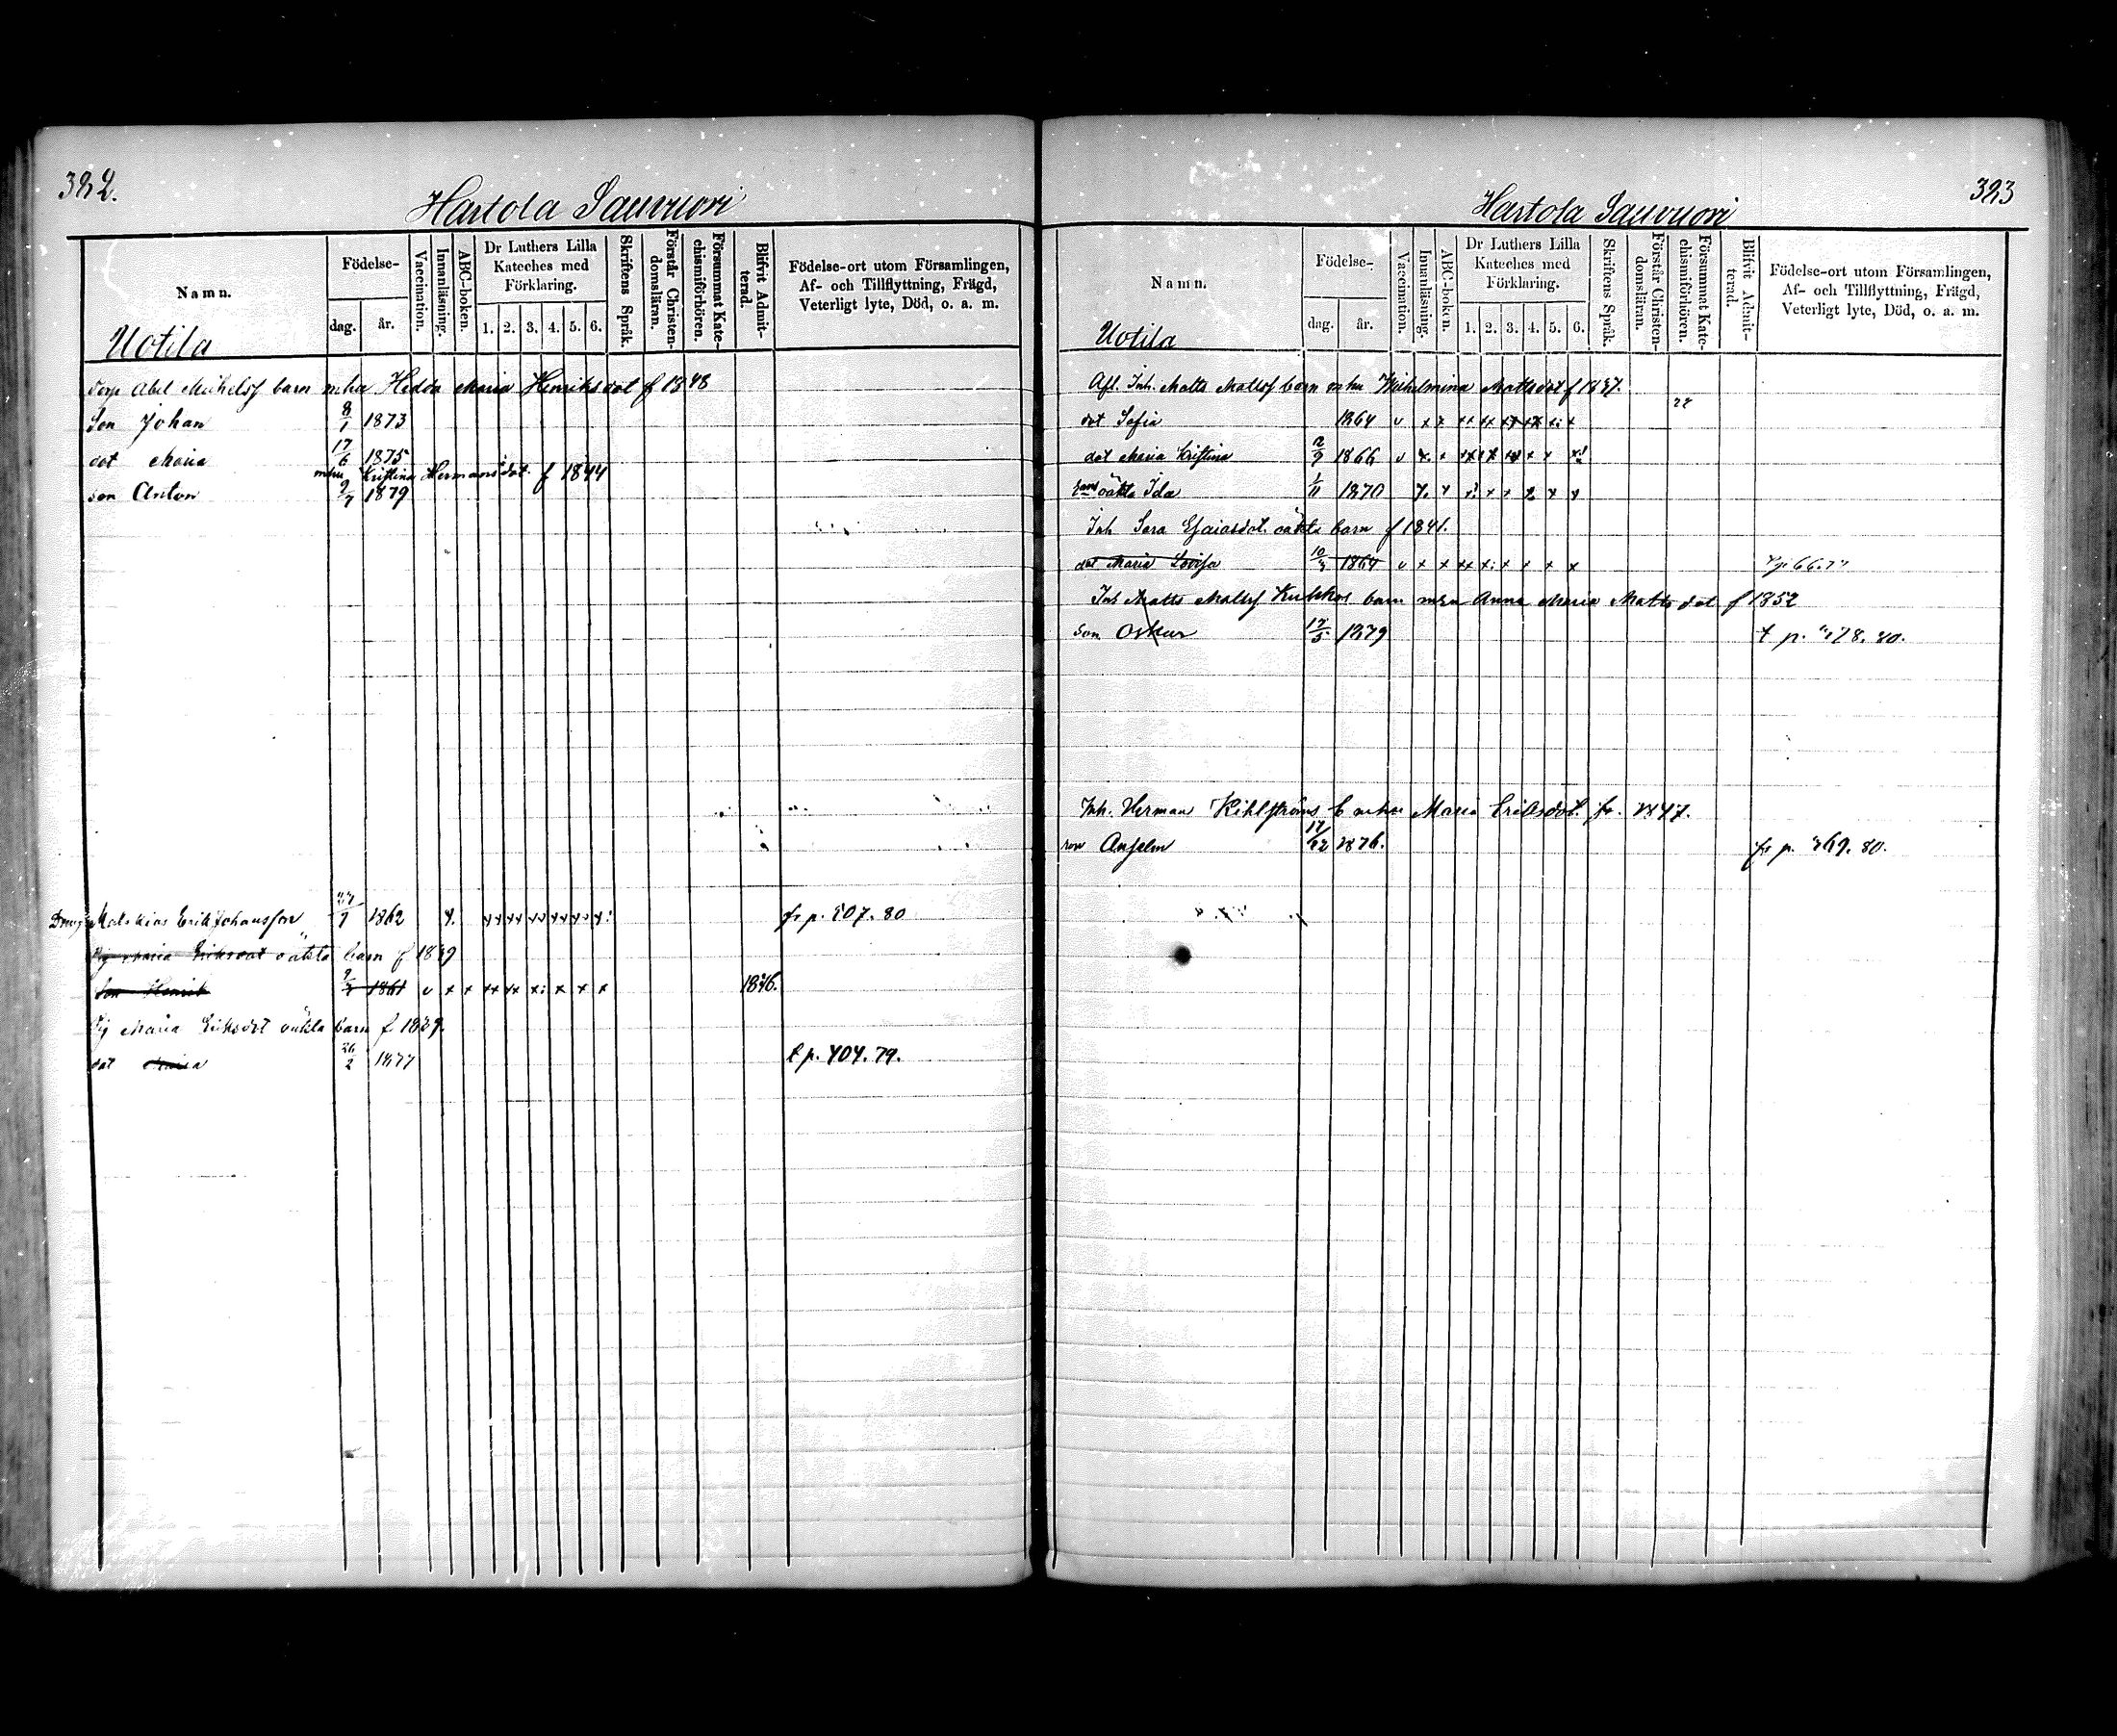 382.
Hartola Sauvuori
Namn.
Födelse-
dag.
år.
Vaccination.
Innanläsning.
ABC-boken.
Dr Luthers Lilla
Kateches med
Förklaring.
1. 2. 3. 4. 5. 6.
Skriftens Språk.
Förstår Christen-
domsläran.
Försummat Kate-
chismiförhören.
Blifvit Admit-
terad.
Födelse-ort utom Församlingen,
Af- och Tillflyttning, Frägd,
Veterligt lyte, Död, o. a. m.
Uotila
Torp Abel Michelsf barn m hu Hedda Maria Henriksdot f 1848
Son Johan 8/1 1873
dot Maria 17/6 1875
m hu Kristina Hermansdot f 1844
son Anton 9/7 1879
Matskias Erik Johansson 1862 fr p. 407. 80
Pig Maria Eriksdot oäkta barn f 1839
Son Henrik 1861 v x x xx xx x: x x x 1876.
Pig Maria Eriksdot oäkta barn f 1839.
dot Maria 26/2 1877 t p. 404. 79.
383
Hartola Sauvuori
Namn.
Födelse-
dag.
år.
Vaccination.
Innanläsning.
ABC-boken.
Dr Luthers Lilla
Kateches med
Förklaring.
1. 2. 3. 4. 5. 6.
Skriftens Språk.
Förstår Christen-
domsläran.
Försummat Kate-
chismiförhören.
Blifvit Admit-
terad.
Födelse-ort utom Församlingen,
Af- och Tillflyttning, Frägd,
Veterligt lyte, Död, o. a. m.
Uotila
Afl. Inh. Matts Mattsf barn m hu Wilhelmina Mattsdot f 1837.
dot Sofia 1864 v
dot Maria Kristina 2/9 1866 v
oäkta Ida 1/11 1870
Inh Sara Esaiasdot. oäkta barn f 1841.
dot Maria Lovisa 1864 v x x xx x: x x x x
Inh Matts Mattsf barn m hu Anna Maria Matts dot f 1852
son Oskar 17/5 1879 t p. 378. 80.
Inh. Herman Kihlströms b m hu Maria Eriksdot. fr. 1847.
son Anselm 17/12 1876. fr p. 369. 80.